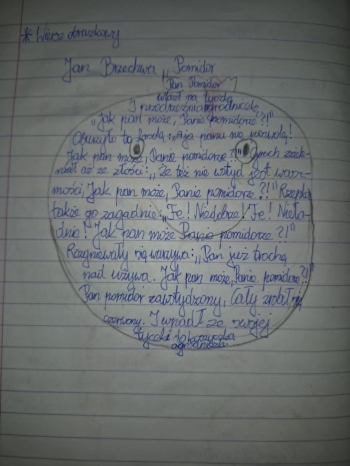 * Wiersz obrazkowy
Jan Brzechwa „Pomidor"
„Pan Pomidor
wlazł na tyczkę
I przedrzeźnia ogrodniczkę.
„Jak pan może, Panie pomidorze?!"
Oburzyło to fasolę: „Ja panu nie pozwolę!
Jak pan może, Panie pomidorze?!" Groch zzie-
leniał aż ze złości: „Że też nie wstyd jest wasz-
mości, Jak pan może, Panie pomidorze?!" Rzepka
także go zagadnie: „Fe! Niedobrze! Fe! Nieła-
dnie! Jak pan może Panie pomidorze?!"
Rozgniewały się warzywa: „Pan już trochę
nad używa. Jak pan może, Panie pomidorze?!"
Pan pomidor zawstydzony, Cały zrobił się
czerwony. I spadł ze swojej
tyczki